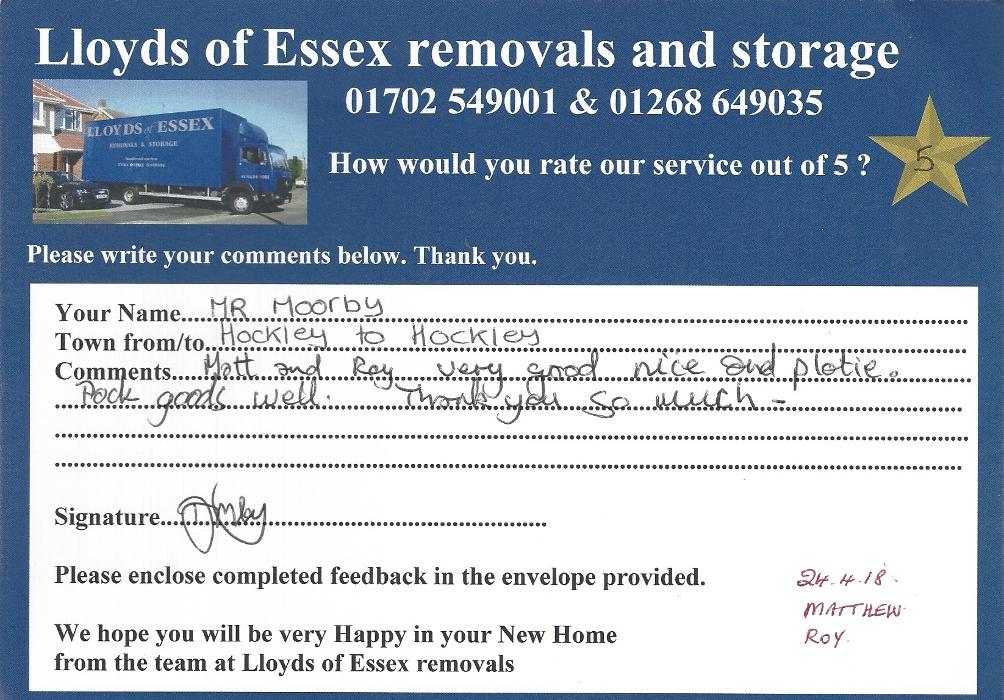 Lloyds of Essex removals and storage
01702 549001 & 01268 649035
LLOYDS of ESSEX
REMOVALS & STORAGE
How would you rate our service out of 5 ?
5
Please write your comments below. Thank you.
Your Name MR Moorby
Town from/to Hockley to Hockley
Comments Matt and Roy very good nice and platie.
Pack goods well. Thank you so much -
Signature
Please enclose completed feedback in the envelope provided.
24.4.18.
MATTHEW
ROY.
We hope you will be very Happy in your New Home
from the team at Lloyds of Essex removals